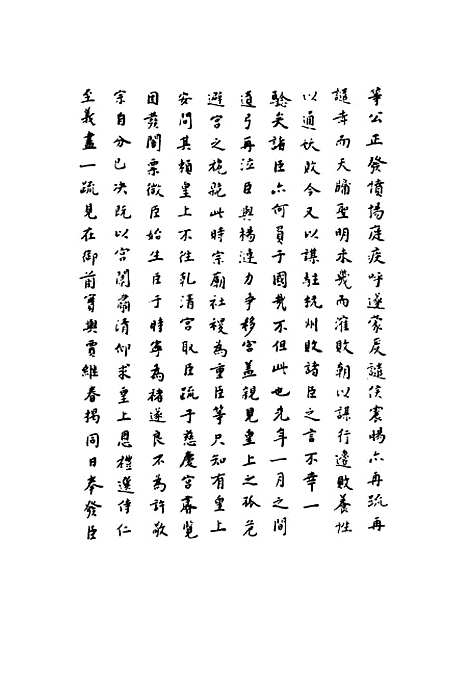 等公正發憤揚庭疾呼遂蒙反譴侯震暘六再疏再
譴幸而天牖聖明未幾而漼敗朝以謀行邊敗養性
以通妖敗今又以謀駐杭州敗諸臣之言不幸一
驗矣諸臣六何員于國哉不但此也先年一月之間
遺弓再泣臣與楊漣力争移宮盖親見皇上之孤危
避宮之施毓此時宗廟社稷為重臣等只知有皇上
安問其頼皇上不住乳清宮取臣疏于慈慶宮審覽
因發閣票微臣始生臣于時寧為褚遂良不為許敬
宗自分已决既以宮闈肅清仰求皇上恩禮選侍仁
至義盡一疏見在御前曽與賈維春揭同日奉發臣